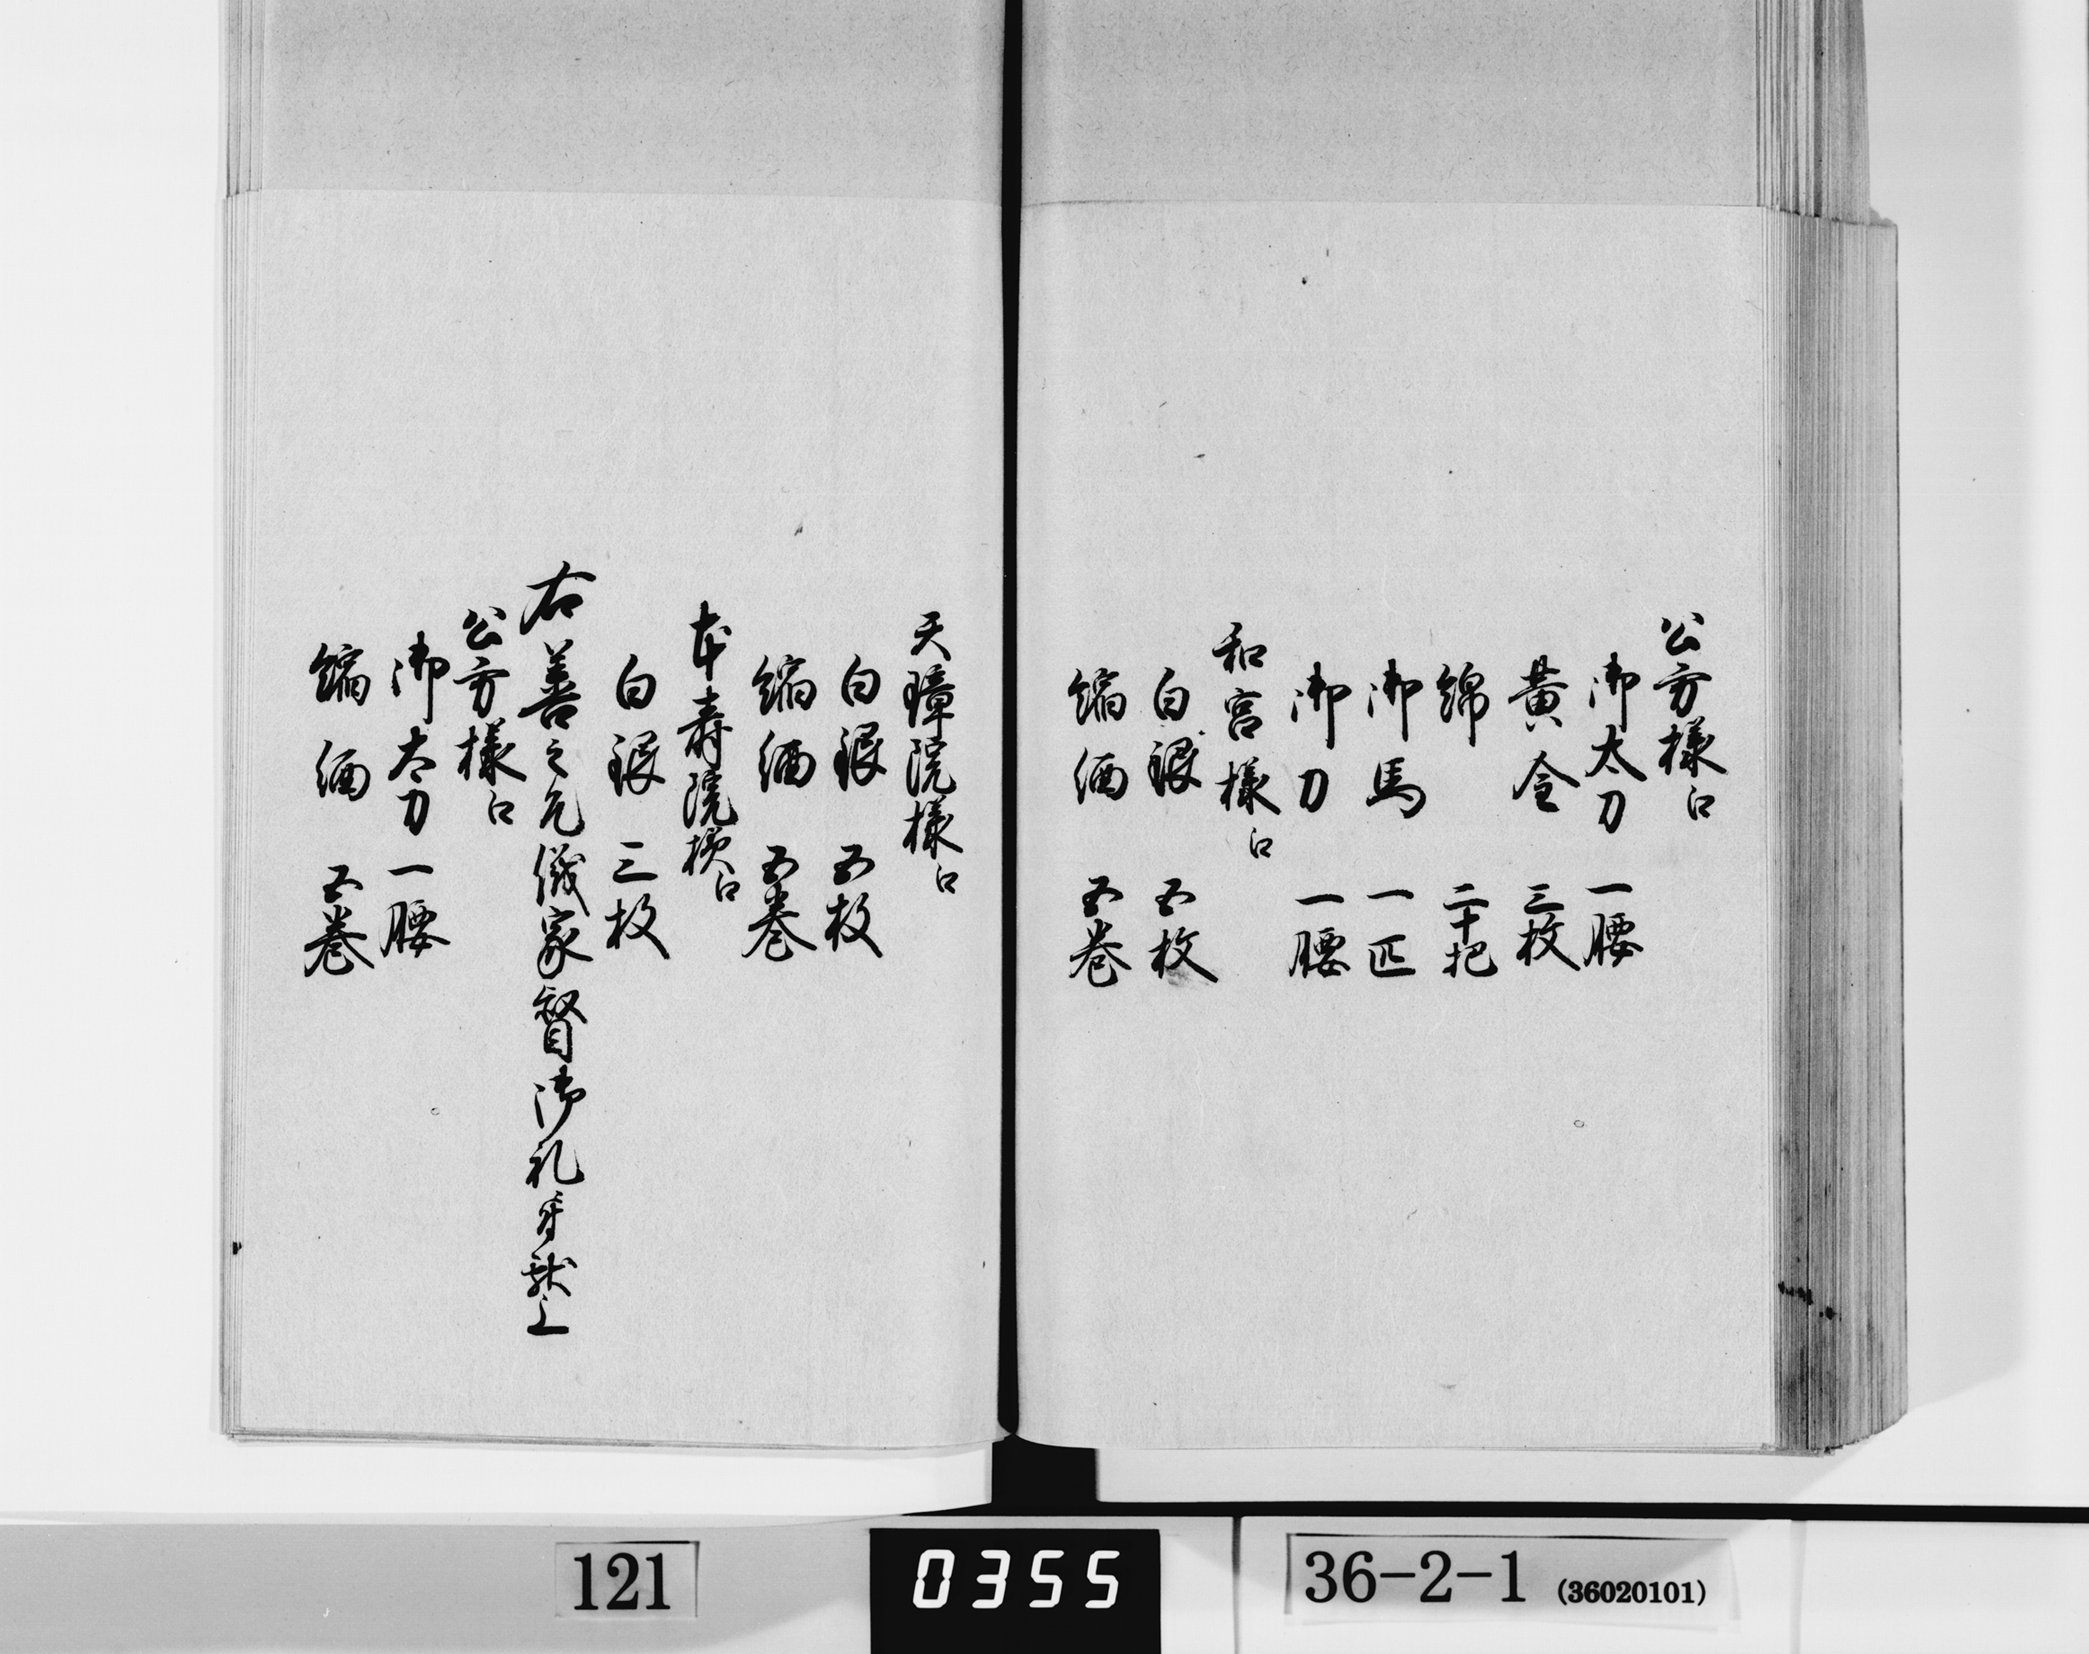 公方様江
御太刀　一腰
黄金　三枚
綿　二十把
御馬　一匹
御刀　一腰
和宮様江
白銀　五枚
縮緬　五巻
天璋院様江
白銀　五枚
縮緬　五巻
本寿院様江
白銀　三枚
右善之允儀家督御礼ニ付献上
公方様江
御太刀　一腰
縮緬　五巻
121
0355
36-2-1 (36020101)